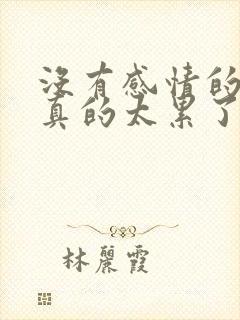 沒有感情的
真的太累了
林麗霞